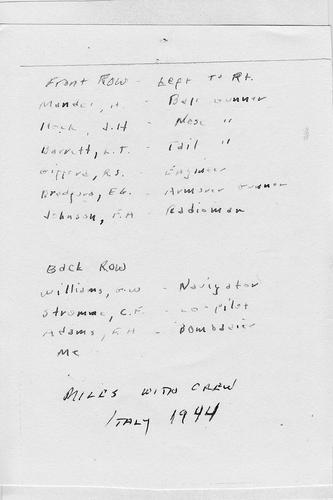 Front Row - Left to Rt.
Mandel, H. - Ball Gunner
Heck, J.H - Nose "
Barrett, L.T. - Tail "
Gifford, R.S. - Engineer
Bradford, E.G. - Armorer Gunner
Johnson, F.A - Radioman
Back Row
Williams, G.W - Navigator
Stromme, C.F. - Co-pilot
Adams, F.H - Bombadier
Me
MILES WITH CREW
ITALY 1944